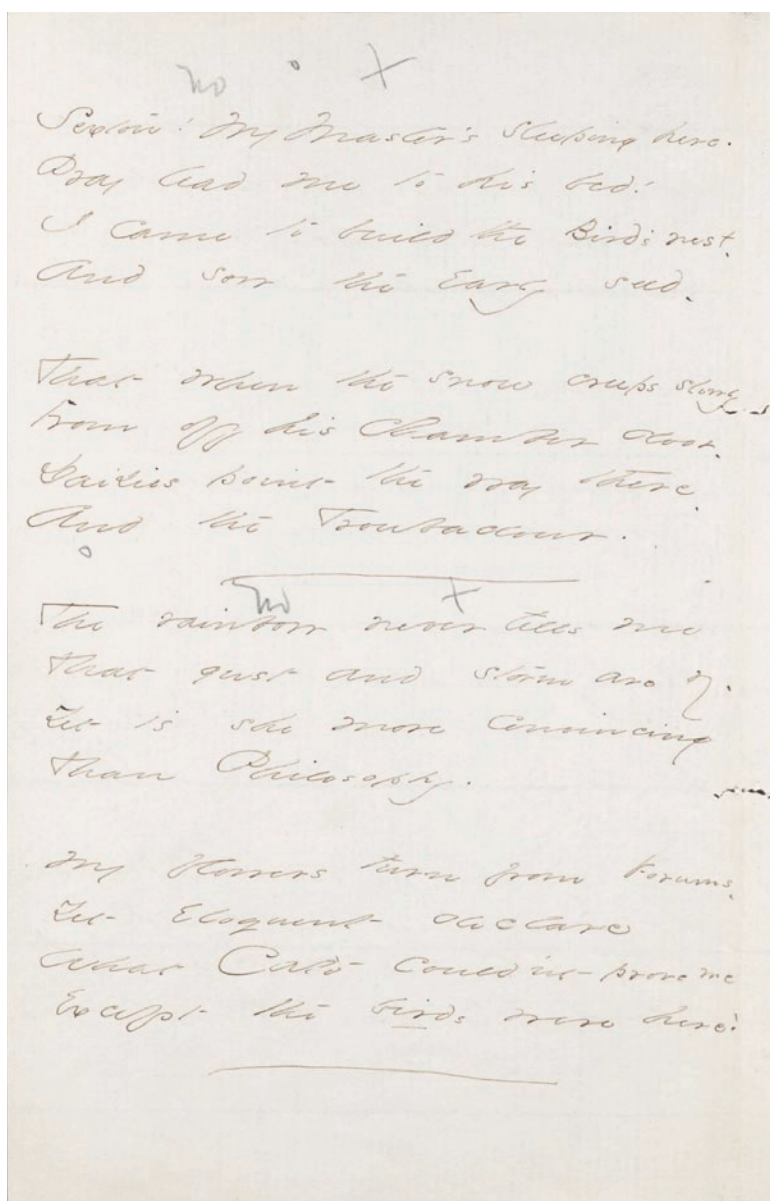 no x
Sexton! My Master's sleeping here.
Pray lead me to his bed!
I came to build the Bird's nest,
And sow the Early seed.
That when the snow creeps slowly
From off his Chamber door.
Daisies point the way there.
And the Troubadour.
no x
The rainbow never tells me
That gust and storm are by.
Yet is she more convincing
Than Philosophy.
My flowers turn from Forums.
Yet Eloquent declare
What Cato could'nt prove me
Except the birds were here!